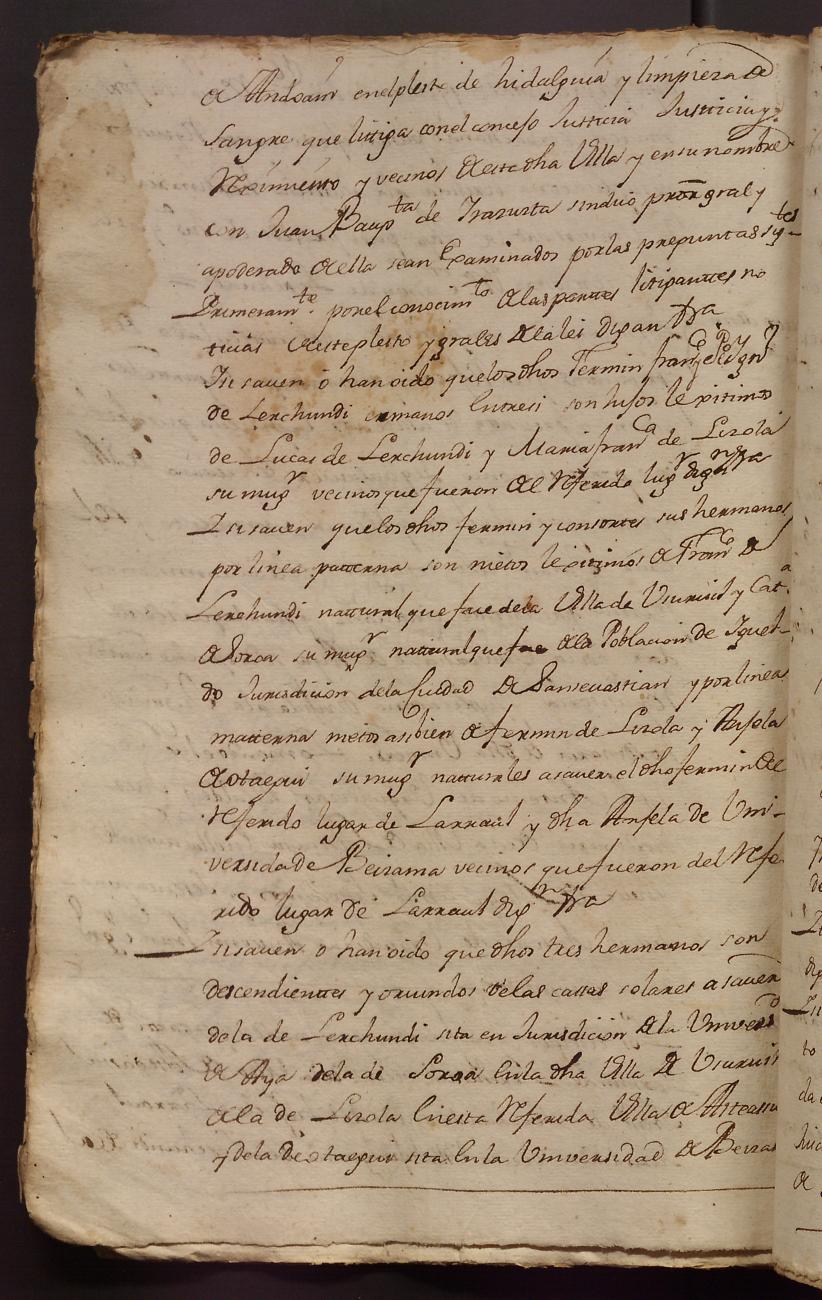 de Andoain en el pleito de hidalguia y limpieza de
sangre que litiga con el consejo Justicia Justicia y
Reximiento y vecinos de esta dha Villa y en su nombre
con Juan Baupta de Irazusta sindico pror gral y
apoderado de ella sean Examinados por las prepuntas sigtes
Primeramte. por el conocimto de las partes litipantes no
ticias de este pleito y grales de la lei digan
Ittn si saven ô han oido que los dhos Fermin franco
de Lerchundi ermanos Entresi son hijos lexitimos
de Lucas de Lerchundi y Maria franca de Lizola
su mugr vecinos que fueron del Referido lugr digan
Ittn si saven que los dhos fermin y consortes sus hermanos
por linea patterna son nietos lexitimos de Franco de
Lerchundi nattural que fue de la Villa de Usurvil y Cata
de Soroa su mugr nattural que fue de la Poblacion de Iguel-
do Jurisdicion de la Ciudad de San sevastian y por linea
matterna nietos asi bien de fermin de Lizola y Anjela
de Otaegui su mugr natturales a saver el dho fermin del
Referido lugar de Larraul y dha Anjela de Uni-
versidad de Beizama vecinos que fueron del Refe-
rido lugar de Larraul dign
Ittn si saven o han oido que dhos tres hermanos son
descendientes y oriundos de las cassas solares a saver
de la de Lerchundi sita en Jurisdicion de la Universd
de Aya de la de Soroa En la dha Villa de Usurvil
de la de Lizola En esta Referida Villa de Asteasu
y de la de Otaegui sita En la Universidad de Beizam